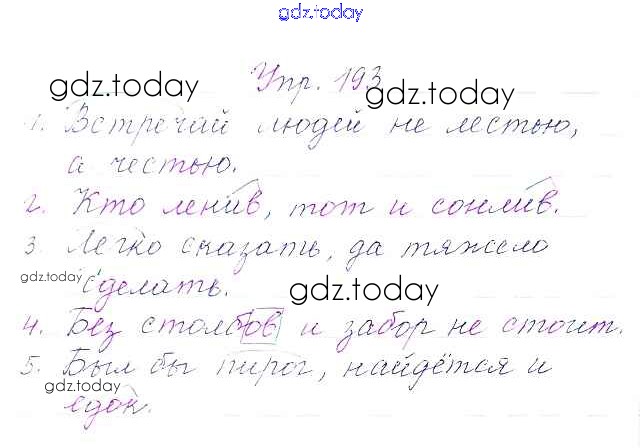 gdz.today
Упр. 193
gdz.today
gdz.today
1. Встречай людей не лестью,
а честью.
2. Кто ленив, тот и сонлив.
3. Легко сказать, да тяжело
gdz.today
сделать.
gdz.today
4. Без столбов и забор не стоит.
5. Был бы пирог, найдётся и
gdz.today
едок.